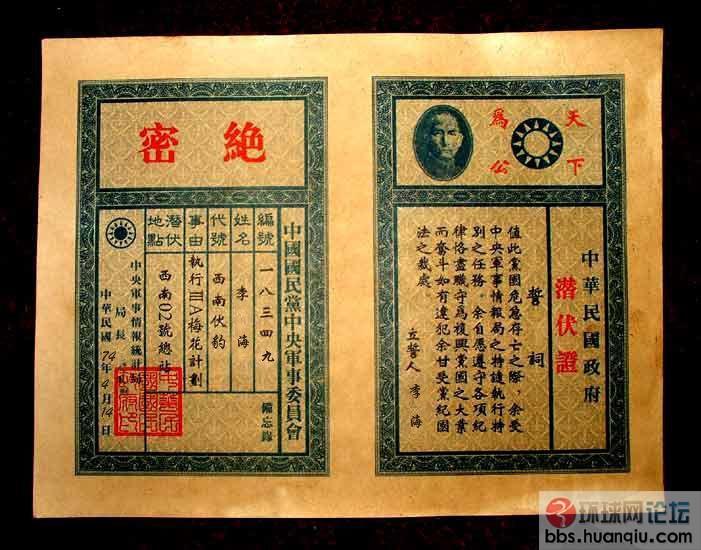 天下
爲公
中華民國政府
潛伏證
誓祠
值此黨國危急存亡之際，余受
中央軍事情報局之特 執行特
別之任務。余自愿遵守各項紀
律恪盡職守爲復興黨國之大業
而奮斗如有違犯余甘受黨紀國
法之裁處。
立誓人 李海
絕密
中國國民黨中央軍事委員會 備忘錄
編號 一八三四九
姓名 李海
代號 西南伏豹
事由 執行ⅢA梅花計劃
潛伏地點 西南02號總社
中央軍事情報統計局
局長
中華民國74年4月14日
环球网论坛
bbs.huanqiu.com